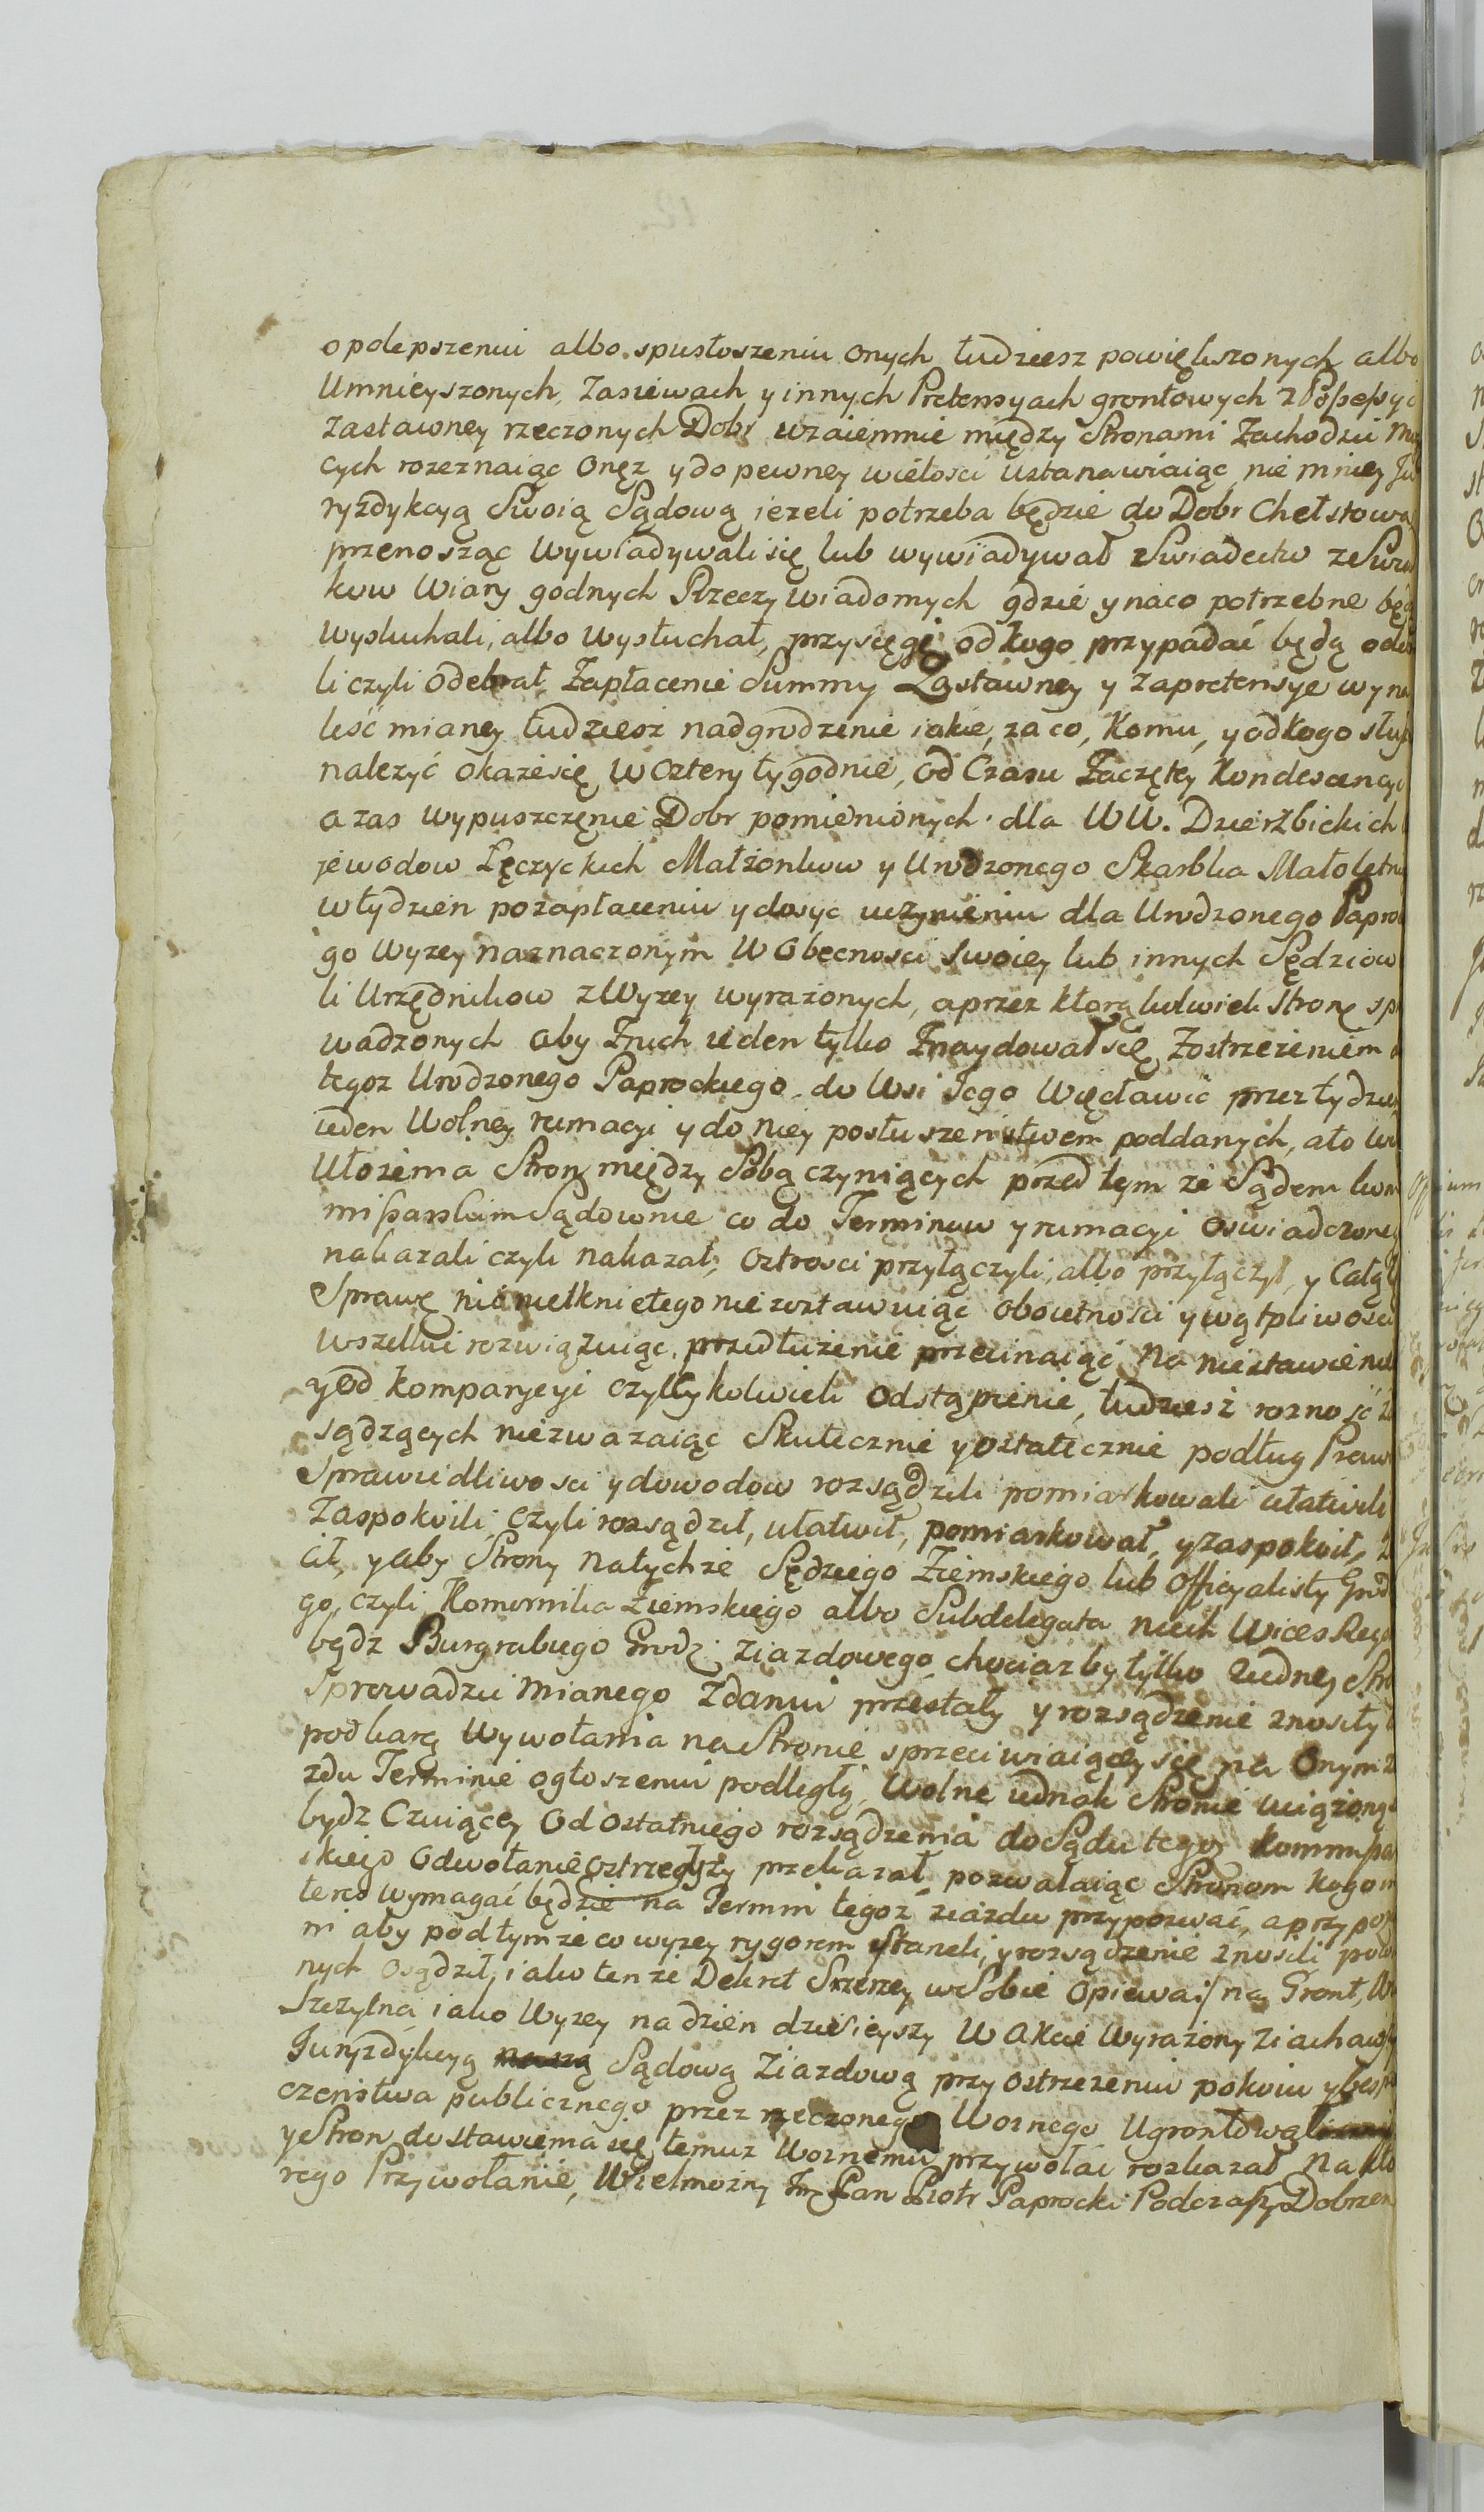 o polepszeniu albo spustoszeniu onych tudziesz powiększonych albo
Umnieyszonych, Zasiewach y innych Pretensyach grontowych z Possessyi
Zastawney rzeczonych Dobr wzaiemnie między Stronami Zachodzić
cych rozeznaiąc onęz y do pewney wielosci ustanawiaiąc nie mniey
ryzdykcyą Swoią Sądową iezeli potrzeba będzie do Dobr Chełstowa
przenosząc wywiadywali się lub wywiadywał Swiadectw z
kow Wiary godnych Rzeczy wiadomych gdzie y na co potrzebne
wysłuchali, albo wysłuchał, przysięgi od kogo przypadać będą
li czyli odebrał Zapłacenie Summy Zastawney y za pretensye
leść mianey tudziesz nadgrodzenie iakie, za co, Komu, y od kogo
nalezyć okaze się w cztery tygodnie, od Czasu Zaczętey Kondescencyi
a zas wypuszczęnie Dobr pomienionych dla WW. Dzierzbickich
jewodow Łęczyckich Małżonkow y Urodzonego Skarbka Małoletn
w tydzien po zapłaceniu y dosyc uczynieniu dla Urodzonego
go wyzey naznaczonym w Obecnosci swoiey lub innych Sędziow
li Urzędnikow z Wyzey wyrazonych, a przez ktorą kolwiek stronę
wadzonych aby z nich ieden tylko znaydował się, z ostrzezeniem
tegoz Urodzonego Paprockiego do Wsi Jego Więcławic przez
ieden Wolney rumacyi y do niey posłuszenstwem poddanych, a to
Ułozenia Stron między Sobą czyniących przed tym ze Sądem
missarskim Sądownie co do Terminow y rumacyi oswiadczone
nakazali czyli nakazał; ostrosci przyłączyli, albo przyłączył, y Całą
Sprawę nic nietkniętego nie zostawuiąc oboiętności y wątpliwosci
wszelkie rozwiązuiąc, przedłużenie przecinaiąc Na niestawienie
y od komparycyi czyiey kolwiek odstąpienie, tudziesz
sądzących niezwazaiąc Skutecznie y ostatecznie podług Praw
Sprawiedliwosci y dowodow rozsądzili pomiarkowali ułatwili
Zaspokoili, czyli rozsądził, ułatwił, pomiarkował, y zaspokoił,
cił, y aby Strony na tychze Sędziego Ziemskiego lub Officyalisty
go, czyli Komornika Ziemskiego albo Subdelegata niech Wices
bądz Burgrabiego Grodz: ziazdowego chociazby tylko iedney
Sprowadzić mianego Zdaniu przestały y rozsądzenie znosiły
pod karą Wywołania na Stronie sprzeciwiaiącey się na Onym
zdu Terminie ogłoszeniu podległy, Wolne iednak Stronie uciązoney
bydz Czuiącey Od ostatniego rozsądzenia do Sądu tegoz
skiego Odwołanie ostrzegłszy przekazał, pozwalaiąc Stronom
terez wymagać będzie na Termin tegoz ziazdu przypozwać, a
ni aby pod tymze co wyzey rygorem staneli, y rozsądzenie znosili
nych osądził, iako tenze Dekret Szerzey w Sobie opiewaiąc na Gront,
Szczytna iako Wyzey na dzien dzisieyszy w Akcie Wyrazony
Juryzdykcyą Sądową Ziazdową przy ostrzezeniu pokoiu y
czenstwa publicznego przez rzeczonego Woznego Ugrontował
y Stron do stawienia się temuz Woznemu przywołać rozkazał Na
rego Przywołanie, Wielmozny Pan Piotr Paprocki Podczaszy